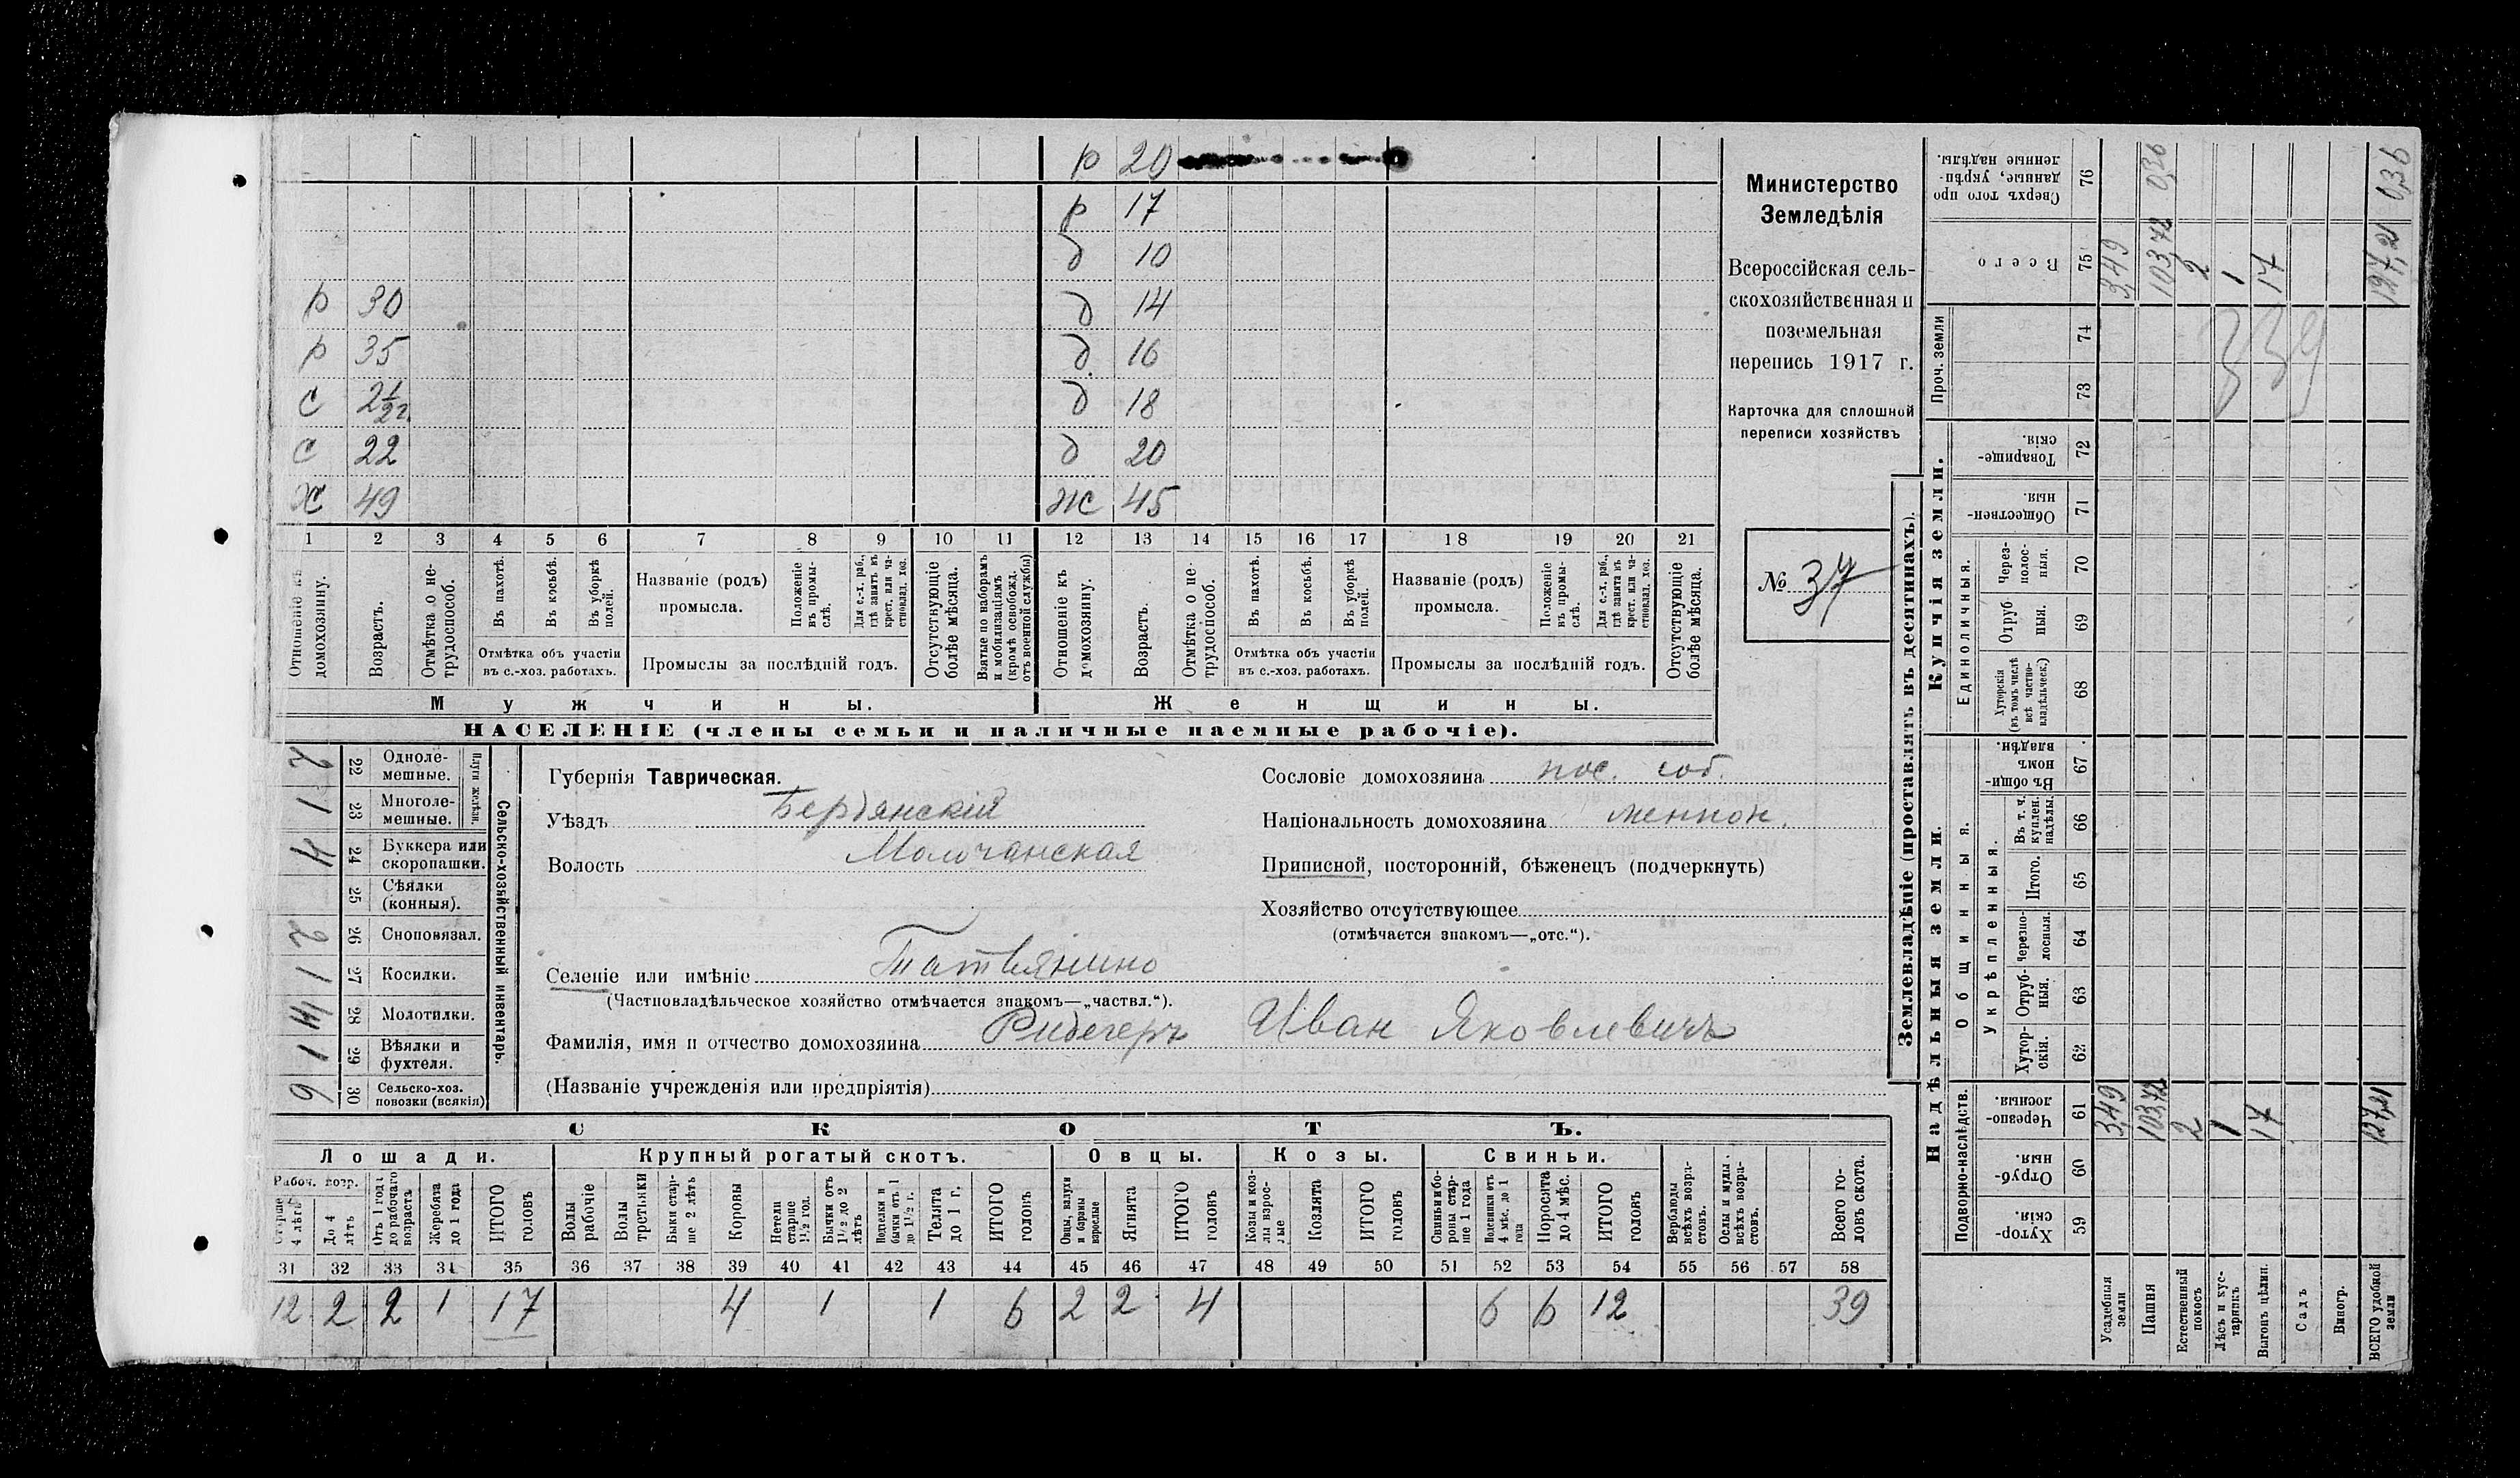 р 20
р 17
д 10
р 30 д 14
р 35 д. 16
с 2½ г. д 18
с 22 д 20
Х 49 жс 45
1 2 3 4 5 6 7 8 9 10 11 12 13 14 15 16 17 18 19 20 21
Отношеніе къ домохозяину.
Возрастъ.
Отмѣтка о не-трудоспособ.
Въ пахотѣ.
Въ косьбѣ.
Въ уборкѣ полей.
Отмѣтка объ участіи въ с.-хоз. работахъ.
Названіе (родъ) промысла.
Положеніе въ промы-слѣ.
Для с.-х. раб., гдѣ занятъ въ крест. или ча-стновлад. хоз.
Промыслы за послѣдній годъ.
Отсутствующіе болѣе мѣсяца.
Взятые по наборамъ и мобилизаціямъ (кромѣ освобожд. отъ военной службы)
Отношеніе къ домохозяину.
Возрастъ.
Отмѣтка о не-трудоспособ.
Въ пахотѣ.
Въ косьбѣ.
Въ уборкѣ полей.
Отмѣтка объ участіи въ с.-хоз. работахъ.
Названіе (родъ) промысла.
Положеніе въ промы-слѣ.
Для с.-х. раб., гдѣ занята въ крест. или ча-стновлад. хоз.
Промыслы за послѣдній годъ.
Отсутствующіе болѣе мѣсяца.
Мужчины. Женщины.
НАСЕЛЕНІЕ (члены семьи и наличные наемные рабочіе).
Министерство
Земледѣлія
Всероссійская сель-
скохозяйственная и
поземельная
перепись 1917 г.
Карточка для сплошной
переписи хозяйствъ
№ 37
2 22 Одноле-мешные.
1 23 Многоле-мешные.
Плуги желѣзн.
4 24 Буккера или скоропашки.
25 Сѣялки (конныя).
2 26 Сноповязал.
1 27 Косилки.
28 Молотилки.
1 29 Вѣялки и фухтеля.
6 30 Сельско-хоз. повозки (всякія)
Сельско-хозяйственный инвентарь.
Губернія Таврическая.
Уѣздъ Бердянскій
Волость Молочанская
Селеніе или имѣніе Татвянино
(Частновладѣльческое хозяйство отмѣчается знакомъ—„частвл.“).
Фамилія, имя и отчество домохозяина Рибегеръ Иван Яковлевичъ
(Названіе учрежденія или предпріятія)
Сословіе домохозяина пос. соб.
Національность домохозяина меннон.
Приписной, посторонній, бѣженецъ (подчеркнуть)
Хозяйство отсутствующее
(отмѣчается знакомъ—„отс.“).
СКОТЪ.
Лошади. Крупный рогатый скотъ. Овцы. Козы. Свиньи.
Рабоч. возр.
Старше 4 лѣтъ
До 4 лѣтъ
Отъ 1 года до рабочаго возраста
Жеребята до 1 года
ИТОГО головъ
Волы рабочіе
Волы третьяки
Быки стар-ше 2 лѣтъ
Коровы
Нетели старше 1½ год.
Бычки отъ 1½ до 2 лѣтъ
Подтелки и бычки отъ 1 до 1½ г.
Телята до 1 г.
ИТОГО головъ
Овцы, валухи и бараны взрослые
Ягнята
ИТОГО головъ
Козы и коз-лы взрос-лые
Козлята
ИТОГО головъ
Свиньи и бо-ровы стар-ше 1 года
Подсвинки отъ 4 мѣс. до 1 года
Поросята до 4 мѣс.
ИТОГО головъ
Верблюды всѣхъ возра-стовъ.
Ослы и мулы всѣхъ возра-стовъ.
Всего го-ловъ скота.
31 32 33 34 35 36 37 38 39 40 41 42 43 44 45 46 47 48 49 50 51 52 53 54 55 56 57 58
12 2 2 1 17 4 1 1 6 2 2 4 6 6 12 39
Землевладѣніе (проставлять въ десятинахъ).
Надѣльныя земли.
Купчія земли.
Проч. земли
Подворно-наслѣдств.
Общинныя.
Укрѣпленныя.
Единоличныя.
Хутор-скія. 59
Отруб-ныя. 60
Черезпо-лосныя. 61
Хутор-скія. 62
Отруб-ныя. 63
Черезпо-лосныя. 64
Итого. 65
Въ т. ч. куплен. надѣлы. 66
Въ общин-номъ владѣн. 67
Хуторскія (въ томъ числѣ всѣ частно-владѣльческ.) 68
Отруб ныя. 69
Через-полос-ныя. 70
Обществен-ныя. 71
Товарище-скія. 72
73
74
Всего 75
Сверхъ того про данные, укрѣп-ленные надѣлы. 76
Усадебныя земли 3,49 3,49
Пашня 103,72 103,72 0,36
Естественный покосъ 2 2
Лѣсъ и кус-тарникъ 1 1
Выгонъ цѣлин. 17 17
Садъ
Виногр.
ВСЕГО удобной земли 127,21 127,21 0,36
339